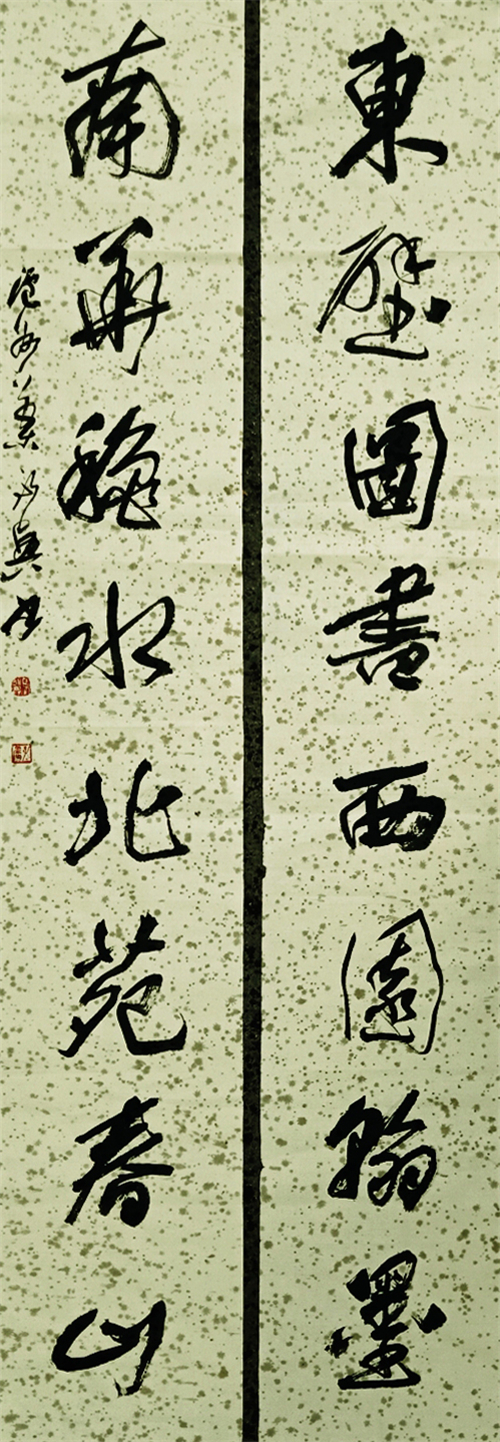 東壁圖書西園翰墨
南華穐水北苑春山